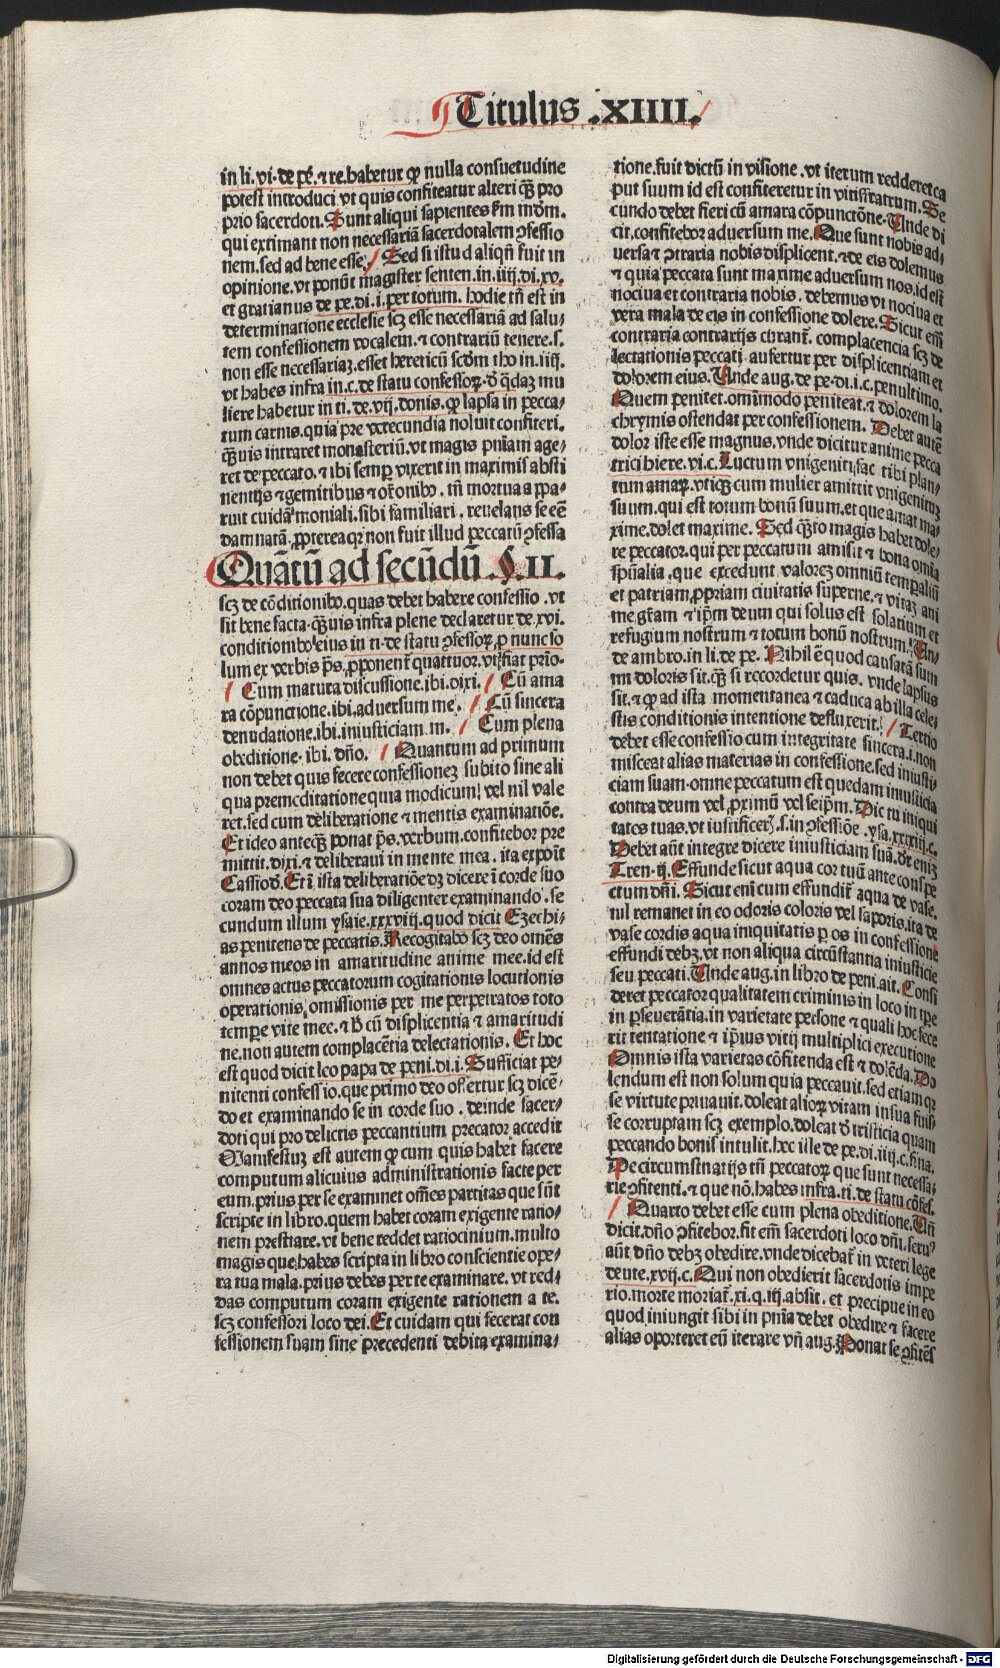 Titulus .XIIII.
in li. vi. de pe. ⁊ re. habetur ꝙ nulla consuetudine
potest introduci vt quis confiteatur alteri ꝙ̃ pro
prio sacerdoti. Sunt aliqui sapientes ẜm mũdũ.
qui extimant non necessariã sacerdotalem ꝯfessio
nem. sed ad bene esse. Sed si istud aliqñ fuit in
opinione. vt ponũt magister senten. in. iiij. di. xv.
et gratianus de pe. di. i. per totum. hodie tñ est in
determinatione ecclesie scꝫ esse necessariã ad salu⸗
tem confessionem vocalem. ⁊ contrariũ tenere. s.
non esse necessariaꝫ. esset hereticũ scd̃m tho in. iiij.
vt habes infra in. c. de statu confessoꝝ. d̓ q̃daꝫ mu
liere habetur in ti. de. vij. donis. ꝙ lapsa in pecca⸗
tum carnis. quia pre verecundia noluit confiteri.
q̃uis intraret monasteriũ. vt magis pñiam age⸗
ret de peccato. ⁊ ibi semꝑ vixerit in maximis absti
nentijs ⁊ gemitibus ⁊ oĩonibꝰ. tñ mortua appa⸗
ruit cuidã moniali. sibi familiari. reuelans se eẽ
damnatã. ꝓpterea qꝛ non fuit illud peccatũ ꝯfessa
Quãtũ ad secũdũ .§. II.
scꝫ de cõditionibꝰ. quas debet habere confessio. vt
sit bene facta. q̃uis infra plene declaretur de. xvi.
conditionibꝰ eius in ti. de statu ꝯfessoꝝ. ꝓ nunc so
lum ex verbis p̃s. ꝓponenť quattuor. vꝫ fiat prio.
Cum matura discussione. ibi. dixi. Cũ ama
ra cõpunctione. ibi. aduersum me. Cũ sincera
denudatione. ibi. iniusticiam m. Cum plena
obeditione. ibi. dño. Quantum ad primum
non debet quis fecere confessioneꝫ subito sine ali
qua premeditatione quia modicum vel nil vale
ret. sed cum deliberatione ⁊ mentis examinatiõe.
Et ideo anteq̃ꝫ ponat p̃s. verbum. confitebor pre
mittit. dixi. ⁊ deliberaui in mente mea. ita expoñt
Cassiod̓. Et ĩ ista deliberatiõe dꝫ dicere ĩ corde suo
coram deo peccata sua diligenter examinando. se
cundum illum ysaie. xxxviij. quod dicit Ezechi⸗
as penitens de peccatis. Recogitabo scꝫ deo omẽs
annos meos in amaritudine anime mee. id est
omnes actus peccatorum cogitationis locutionis
operationis omissionis per me perpetratos toto
tempe vite mee. ⁊ h̓ cũ displicentia ⁊ amaritudi
ne. non autem complacẽtia delectationis. Et hoc
est quod dicit leo papa de peni. di. i. Sufficiat pe⸗
nitenti confessio. que primo deo offertur scꝫ dicẽ⸗
do et examinando se in corde suo. deinde sacer⸗
doti qui pro delictis peccantium precator accedit
Manifestuꝫ est autem ꝙ cum quis habet facere
computum alicuius administrationis facte per
eum. prius per se examinet om̃es partitas que sũt
scripte in libro. quem habet coram exigente ratio⸗
nem prestare. vt bene reddet ratiocinium. multo
magis que habes scripta in libro conscientie ope⸗
ra tua mala. prius debes per te examinare. vt red⸗
das computum coram exigente rationem a te.
scꝫ confessori loco dei. Et cuidam qui fecerat con
fessionem suam sine precedenti debita examina⸗
tione. fuit dictũ in visione. vt iterum redderet ca
put suum id est confiteretur in vitisfratrum. Se
cundo debet fieri cũ amara cõpunctõne. Unde di
cit. confitebor aduersum me. Que sunt nobis ad⸗
uersa ⁊ ꝯtraria nobis displicent. ⁊ de eis dolemus
⁊ quia peccata sunt maxime aduersum nos. id est
nociua et contraria nobis. debemus vt nociua et
vera mala de eis in confessione dolere. Sicut em̃
contraria contrarijs curanť. complacencia scꝫ de
lectationis peccati aufertur per displicentiam et
dolorem eius. Unde aug. de pe. di. i. c. penultimo.
Quem penitet. omimodo peniteat. ⁊ dolorem la
chrymis ostendat per confessionem. Debet autẽ
dolor iste esse magnus. vnde dicitur anime pecca
trici hiere. vi. c. Luctum vnigeniti fac tibi plan⸗
tum amaꝝ. vticꝫ cum mulier amittit vnigenitũ
suum. qui est totum bonũ suum. et que amat ma⸗
xime. dolet maxime. Sed q̃to magis habet dole⸗
re peccator. qui per peccatum amisit ⁊ bona omia
spũalia. que excedunt valoreꝫ omniũ tempaliũ
et patriam ꝓpriam ciuitatis superne. ⁊ vitaꝫ ani
me. gr̃am ⁊ ip̃m deum qui solus est solatium et
refugium nostrum ⁊ totum bonũ nostrum. Un⸗
de ambro. in li. de pe. Nihil ẽ quod causatã sum
mi doloris sit. q̃ꝫ si recordetur quis. vnde lapsus
sit. ⁊ ꝙ ad ista momentanea ⁊ caduca ab illa cele⸗
stis conditionis intentione defluxerit. Tertio
debet esse confessio cum integritate sincera. i. non
misceat alias materias in confessione. sed iniusti⸗
ciam suam. omne peccatum est quedam iniusticia
contra deum vel ꝓximũ vel seip̃m. Dic tu iniqui
tates tuas. vt iustificeris. s. in ꝯfessiõe. ysa. xxxxiij. c.
Debet aũt integre dicere iniusticiam suã. dr̃ eniꝫ
Tren. ij. Effunde sicut aqua cor tuũ ante conspe
ctum dñi. Sicut eni cum effundiť aqua de vase.
nil remanet in eo odoris coloris vel saporis. ita de
vase cordis aqua iniquitatis ꝑ os in confessione
effundi debꝫ. vt non aliqua circũstantia iniusticie
seu peccati. Unde aug. in libro de peni. ait. Consi
deret peccator qualitatem criminis in loco in tp̃e
in ꝑseuerãtia. in varietate persone ⁊ quali hoc fece
rit tentatione ⁊ ip̃ius vitij multiplici executione
Omnis ista varietas cõfitenda est ⁊ dolẽda. Do
lendum est non solum quia peccauit. sed etiam qꝛ
se virtute priuauit. doleat alioꝝ vitam in sua fuis⸗
se corruptam scꝫ exemplo. doleat d̓ tristicia quam
peccando bonis intulit. hec ille de pe. di. iiij. c. fina.
De circumstñatijs tñ peccatoꝝ que sunt necessa⸗
rie ꝯfitenti. ⁊ que nõ. habes infra. ti. de statu cõfes.
Quarto debet esse cum plena obeditione. Uñ
dicit. dño ꝯfitebor. fit em̃ sacerdoti loco dñi. seruꝰ
aũt dño debꝫ obedire. vnde dicebať in veteri lege
deute. xvij. c. Qui non obedierit sacerdotis impe
rio. morte moriať. xi. q. iij. absit. et precipue in eo
quod iniungit sibi in pñia debet obedire ⁊ facere
alias oporteret eũ iterare vñ aug. Ponat se ꝯfitẽs
Digitalisierung gefördert durch die Deutsche Forschungsgemeinschaft - DFG